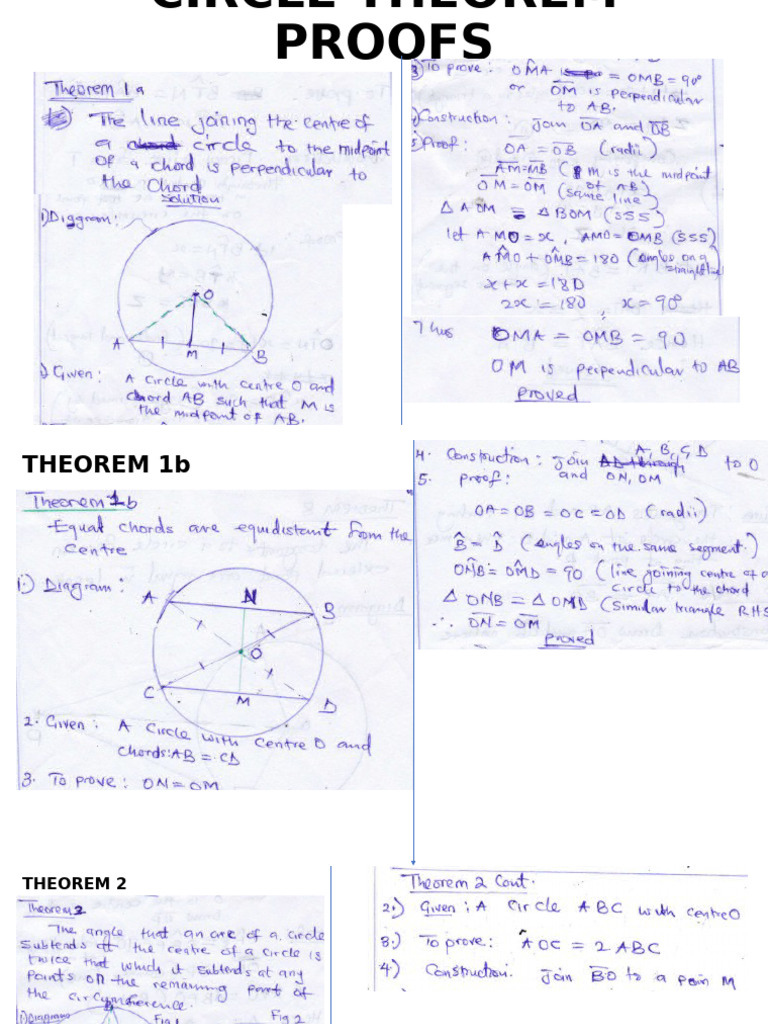 CIRCLE THEOREM
PROOFS
Theorem 1a
The line joining the centre of
a circle to the midpoint
of a chord is perpendicular to
the chord
Solution
1) Diagram:
O
A
M
B
Given: A circle with centre O and
chord AB such that M is
the midpoint of AB.
3) To prove: OM̂A = OMB = 90°
or OM is perpendicular
to AB.
Construction: join OA and OB
5) Proof:
OA = OB (radii)
AM = MB (M is the midpoint
of AB)
OM = OM (same line)
Δ AOM = Δ BOM (SSS)
let AMO = x, AMO = OMB (SSS)
AM̂O + OM̂B = 180 (angles on a
straight line)
x + x = 180
2x = 180 x = 90°
Thus OMA = OMB = 90
OM is perpendicular to AB
proved
THEOREM 1b
Theorem 1b
Equal chords are equidistant from the
centre
1.) Diagram:
A
N
B
O
C
M
D
2. Given: A circle with centre O and
chords: AB = CD
3. To prove: ON = OM
4. Construction: join A, B, C, D to O
and ON, OM
5. proof:
OA = OB = OC = OD (radii)
B̂ = D̂ (angles on the same segment.)
ON̂B = OM̂D = 90 (line joining centre of a
circle to the chord
Δ ONB = Δ OMD (similar triangle RHS
∴ ON = OM
proved
THEOREM 2
Theorem 2
The angle that an arc of a circle
subtends at the centre of a circle is
twice that which it subtends at any
points on the remaining part of
the circumference.
1) Diagrams
B
Fig 1
Fig 2
Theorem 2 Cont.
2.) Given: A circle ABC with centre O
3.) To prove: AÔC = 2 ABC
4) Construction: Join BO to a poin M